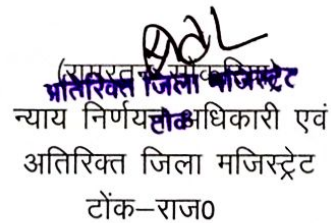 (रामरतन सौंकरिया)
अतिरिक्त जिला मजिस्ट्रेट
टोंक
न्याय निर्णयन अधिकारी एवं
अतिरिक्त जिला मजिस्ट्रेट
टोंक–राज0